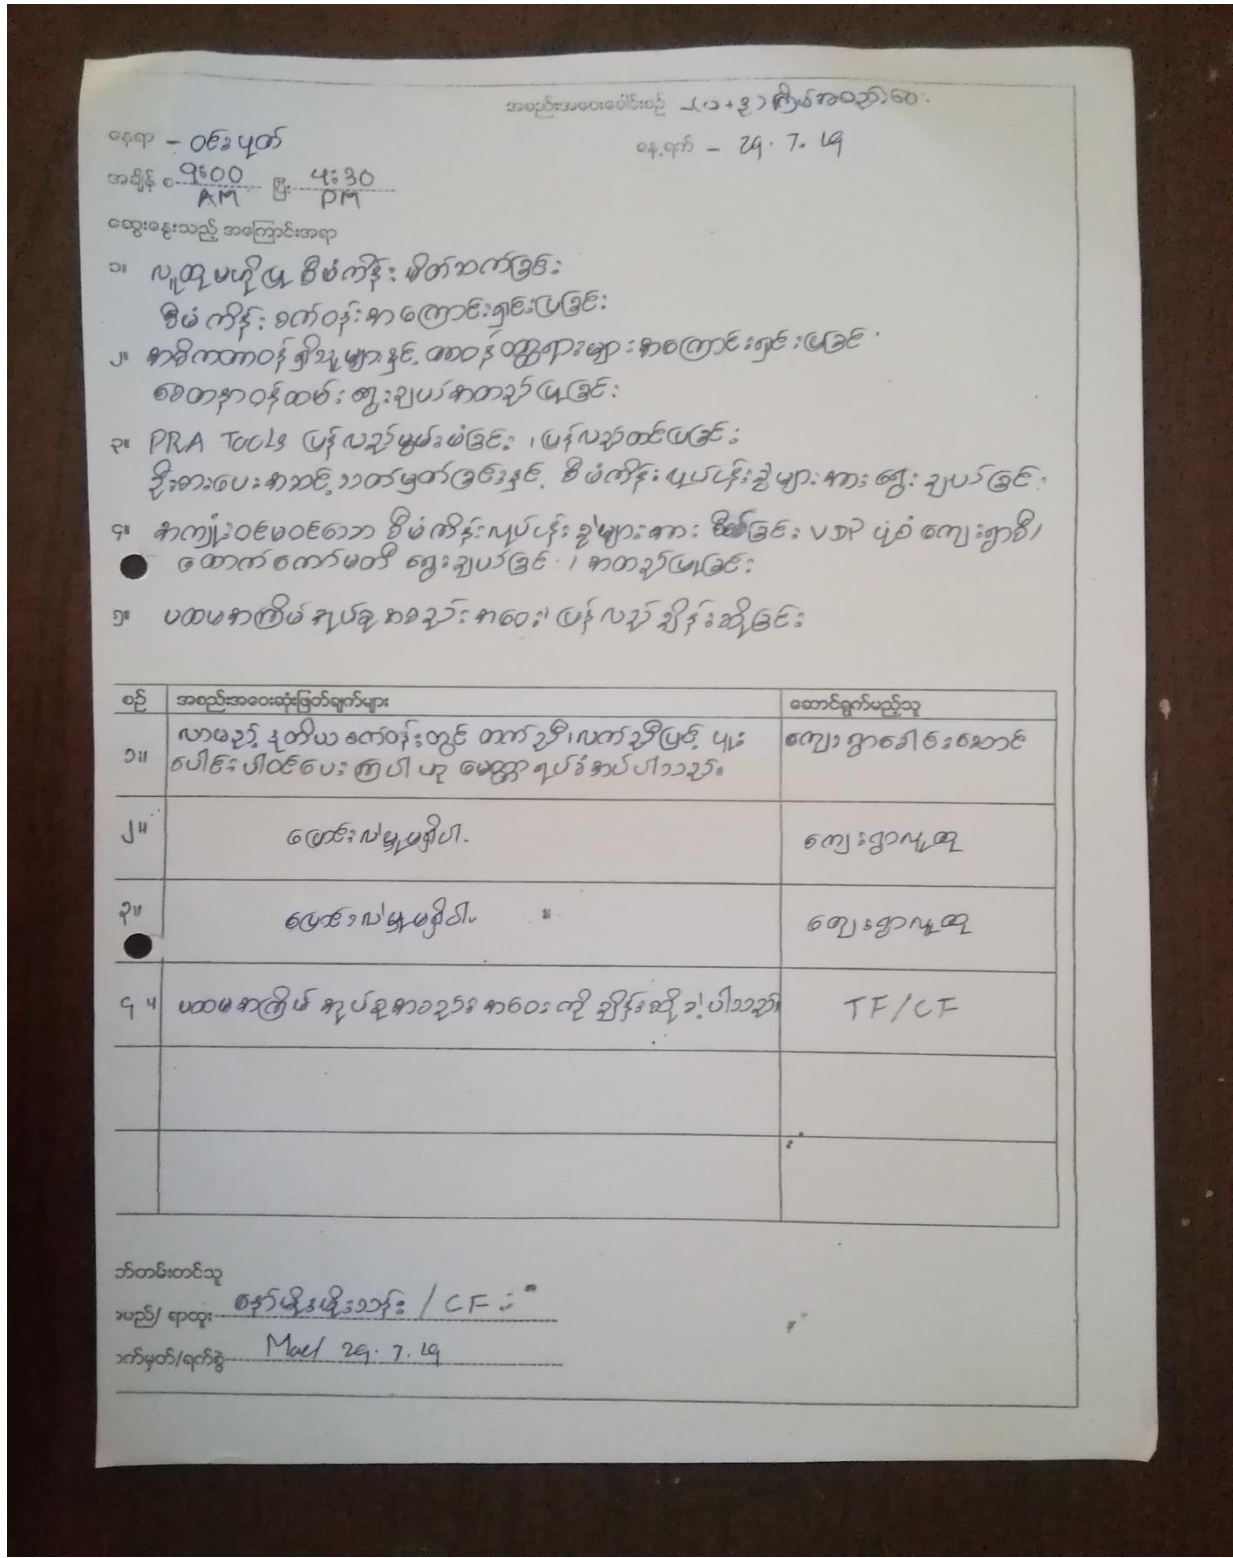 အစည်းအဝေးခေါင်းစဉ် -(၁+၃) ကြိမ်အစည်းဝေး
နေရာ - ဝင်းပုတ်
နေ့ရက် - 29.7.19
အချိန် စ 9:00 AM ပြီး 4:30 PM
ဆွေးနွေးသည့် အကြောင်းအရာ
၁။ လူထုဗဟိုပြု စီမံကိန်း မိတ်ဆက်ခြင်း
စီမံကိန်း စက်ဝန်းအကြောင်းရှင်းပြခြင်း
၂။ အဓိကတာဝန်ရှိသူများနှင့် တာဝန်ဝတ္တရားများအကြောင်းရှင်းပြခြင်း
စေတနာ့ဝန်ထမ်း ရွေးချယ်အတည်ပြုခြင်း
၃။ PRA Tools ပြန်လည်မွမ်းမံခြင်း၊ ပြန်လည်တင်ပြခြင်း
ဦးစားပေးအဆင့်သတ်မှတ်ခြင်းနှင့် စီမံကိန်းလုပ်ငန်းခွဲများအား ရွေးချယ်ခြင်း
၄။ အကျုံးဝင်မဝင်သော စီမံကိန်းလုပ်ငန်းခွဲများအား စိစစ်ခြင်း VDP ပုံစံ ကျေးရွာစီ/
ထောက်ကော်မတီ ရွေးချယ်ခြင်း၊ အတည်ပြုခြင်း
၅။ ပထမအကြိမ် အုပ်စုအစည်းအဝေး ပြန်လည်ညှိနှိုင်းဆိုခြင်း
စဉ် အစည်းအဝေးဆုံးဖြတ်ချက်များ ဆောင်ရွက်မည့်သူ
၁။ လာမည့် ဒုတိယစက်ဝန်းတွင် တက်ညီ၊လက်ညီဖြင့် ပူး ကျေးရွာခေါင်းဆောင်
ပေါင်းပါဝင်ပေးကြပါ ဟု မေတ္တာရပ်ခံအပ်ပါသည်။
၂။ ပြောင်းလဲမှုမရှိပါ။ ကျေးရွာလူထု
၃။ ပြောင်းလဲမှုမရှိပါ။ ကျေးရွာလူထု
၄။ ပထမအကြိမ် အုပ်စုအစည်းအဝေးကို ညှိနှိုင်းဆိုခဲ့ပါသည်။ TF/CF
ဘ်တမ်းတင်သူ
မည်/ ရာထူး နော်မိုးမိုးသန်း / CF
က်မှတ်/ရက်စွဲ 29.7.19